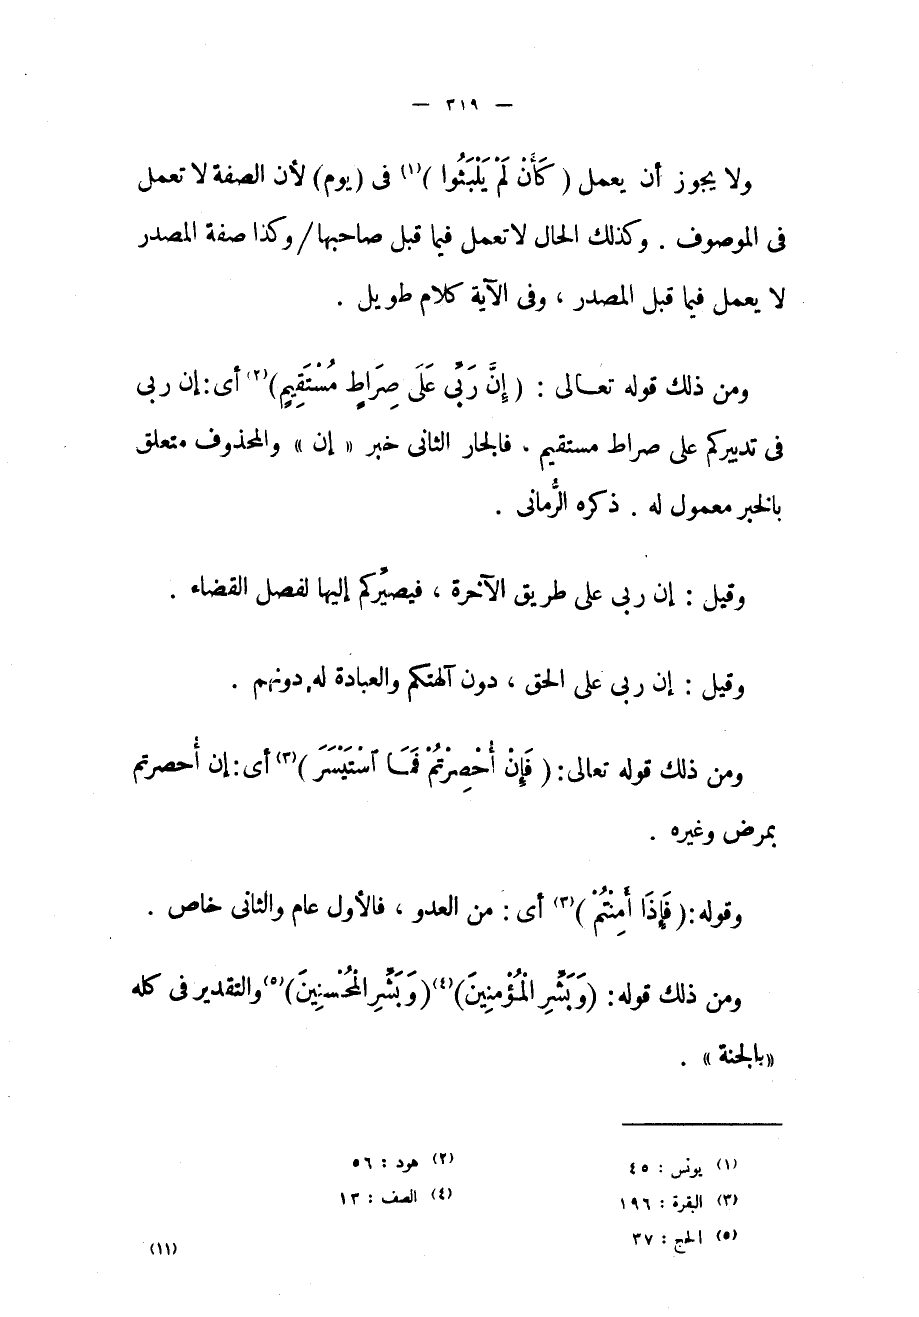 — ٣١٩ —
ولا يجوز أن يعمل ( كَأَنْ لَمْ يَلْبَثُوا )(١) فى (يوم) لأن الصفة لا تعمل
فى الموصوف . وكذلك الحال لا تعمل فيما قبل صاحبها/ وكذا صفة المصدر
لا يعمل فيما قبل المصدر ، وفى الآية كلام طويل .
ومن ذلك قوله تعـالى : ( إِنَّ رَبِّى عَلَى صِرَاطٍ مُسْتَقِيمٍ)(٢) أى : إن ربى
فى تدبيركم على صراط مستقيم . فالجار الثانى خبر « إن » والمحذوف متعلق
بالخبر معمول له . ذكره الرُّمانى .
وقيل : إن ربى على طريق الآخرة ، فيصيّركم إليها لفصل القضاء .
وقيل : إن ربى على الحق ، دون آلهتكم والعبادة له دونهم .
ومن ذلك قوله تعالى : ( فَإِنْ أُحْصِرْتُمْ فَمَـا ٱسْتَيْسَرَ )(٣) أى : إن أُحصرتم
بمرض وغيره .
وقوله : ( فَإِذَا أَمِنْتُمْ )(٣) أى : من العدو ، فالأول عام والثانى خاص .
ومن ذلك قوله : (وَبَشِّرِ الْمُؤْمِنِينَ)(٤) (وَبَشِّرِ الْمُحْسِنِينَ)(٥) والتقدير فى كله
«بالجنة» .
(١) يونس : ٤٥ (٢) هود : ٥٦
(٣) البقرة : ١٩٦ (٤) الصف : ١٣
(٥) الحج : ٣٧
(١١)